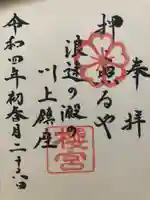 奉拝
押照るや
浪速の瀲の
川上鎮座
令和四年初春月二十六日
櫻宮